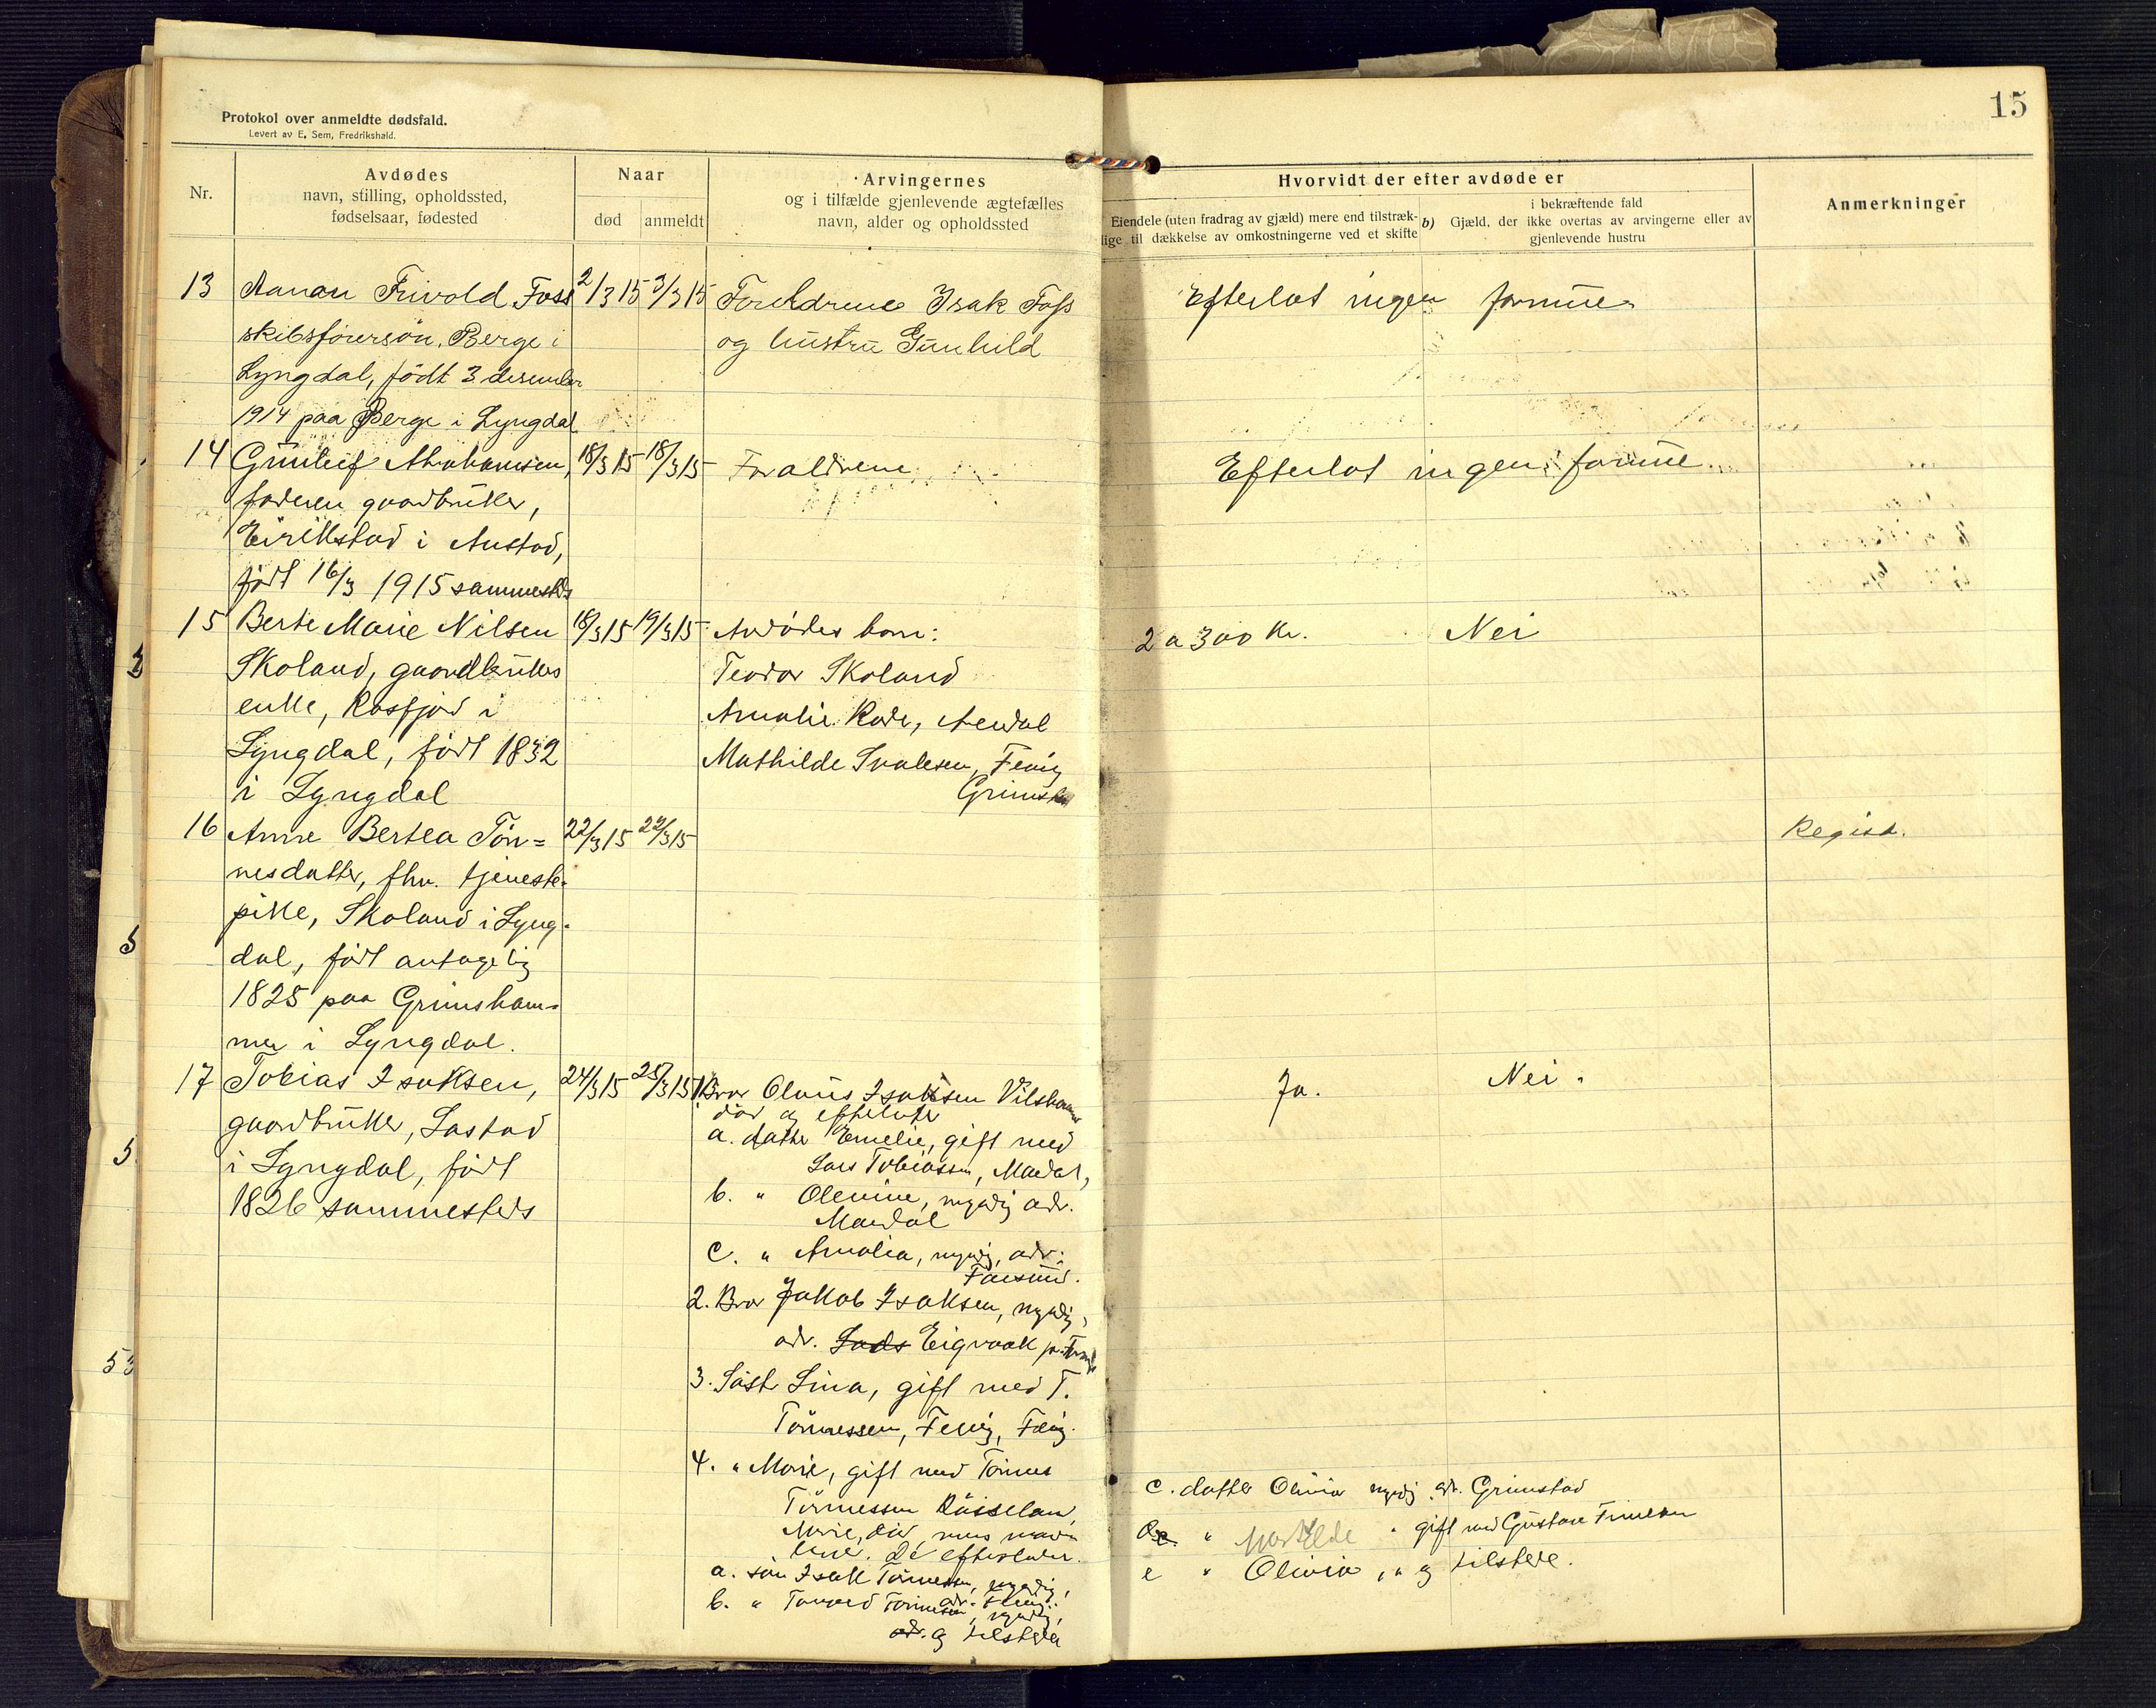 15
Protokol over anmeldte dødsfald.
Levert av E. Sem, Fredrikshald.
Nr.
Avdødes
navn, stilling, opholdssted,
fødselsaar, fødested
Naar
død
anmeldt
Arvingernes
og i tilfælde gjenlevende ægtefælles
navn, alder og opholdssted
Hvorvidt der efter avdøde er
Eiendele (uten fradrag av gjæld) mere end tilstræk-
lige til dækkelse av omkostningerne ved et skifte
b)
i bekræftende fald
Gjæld, der ikke overtas av arvingerne eller av
gjenlevende hustru
Anmerkninger
13
Aanan Frivold Foss
skibsførersøn, Berge i
Lyngdal, født 3 desember
1914 paa Berge i Lyngdal
2/3 15
3/3 15
Forældrene Isak Foss
og hustru Gunhild
Efterlot ingen formue
14
Gunleif Abrahamsen,
faderen gaardbruker,
Eirikstad i Austad,
født 16/3 1915 sammesteds
18/3 15
18/3 15
Forældrene
Efterlot ingen formue
15
Berte Marie Nilsen
Skoland, gaardbrukers
enke, Rosfjord i
Lyngdal, født 1832
i Lyngdal
18/3 15
19/3 15
Avdødes barn:
Teodor Skoland
Amalie Rode, Arendal
Mathilde Svalesen, Fevig
Grimstad
2 a 300 Kr.
Nei
16
Anne Bertea Tøn=
nesdatter, fhv. tjeneste-
pike, Skoland i Lyng-
dal, født antagelig
1825 paa Grimsham=
mer i Lyngdal.
22/3 15
22/3 15
Regist.
17
Tobias Isaksen,
gaardbruker, Lastad
i Lyngdal, født
1826 sammesteds
24/3 15
25/3 15
1. Bror Olaus Isaksen
død og efterlater
a. datter Emelie, gift med
Lars Tobiassen, Mandal,
b. " Olenine, myndig adr.
Mandal
c. " Amalia, myndig, adr.
Farsund.
2. Bror Jakob Isaksen, myndig,
adr. Eigvaak
3. Søster Lina, gift med T.
Tønnessen, Fevig,
4. " Marie, gift med Tønnes
Tønnessen
Marie, død
De efterlater
a. søn Isak Tønnessen, myndig,
adr. Fevig.
b. " Tønnessen, myndig,
adr. og tilstede
Ja.
Nei.
c. datter Olivia myndig adr. Grimstad
" gift med Gustav
e " Olivia " og tilstede.
5
5
53